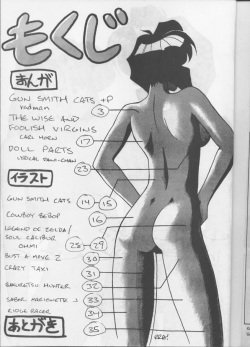 もくじ
まんが
GUN SMITH CATS +P
3
THE WISE AND
FOOLISH VIRGINS
CARL HORN
17
DOLL PARTS
23
イラスト
GUN SMITH CATS 14 15
COWBOY BEBOP 16
LEGEND OF ZELDA/
SOUL CALIBUR 28-29
OHMI
BUST A MOVE 2 30
CRAZY TAXI 31
BAKURETSU HUNTER 32
SABER MARIONETTE J 33
RIDGE RACER 34
あとがき 35